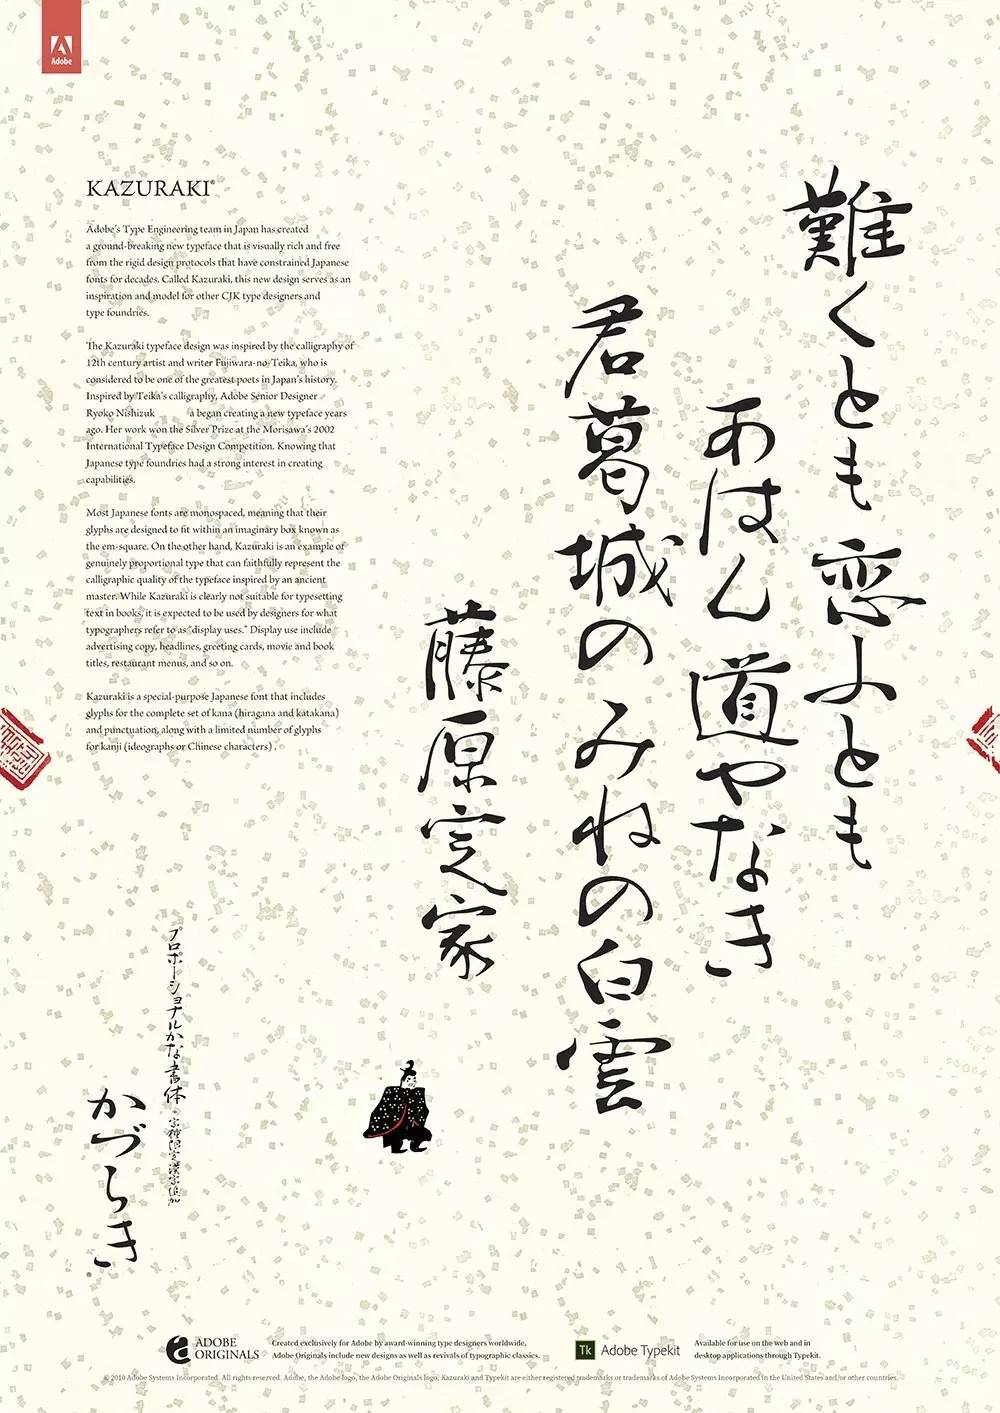 Adobe
KAZURAKI®
Adobe's Type Engineering team in Japan has created
a ground-breaking new typeface that is visually rich and free
from the rigid design protocols that have constrained Japanese
fonts for decades. Called Kazuraki, this new design serves as an
inspiration and model for other CJK type designers and
type foundries.
The Kazuraki typeface design was inspired by the calligraphy of
12th century artist and writer Fujiwara-no-Teika, who is
considered to be one of the greatest poets in Japan's history.
Inspired by Teika's calligraphy, Adobe Senior Designer
Ryoko Nishizuk a began creating a new typeface years
ago. Her work won the Silver Prize at the Morisawa's 2002
International Typeface Design Competition. Knowing that
Japanese type foundries had a strong interest in creating
capabilities.
Most Japanese fonts are monospaced, meaning that their
glyphs are designed to fit within an imaginary box known as
the em-square. On the other hand, Kazuraki is an example of
genuinely proportional type that can faithfully represent the
calligraphic quality of the typeface inspired by an ancient
master. While Kazuraki is clearly not suitable for typesetting
text in books, it is expected to be used by designers for what
typographers refer to as "display uses." Display use include
advertising copy, headlines, greeting cards, movie and book
titles, restaurant menus, and so on.
Kazuraki is a special-purpose Japanese font that includes
glyphs for the complete set of kana (hiragana and katakana)
and punctuation, along with a limited number of glyphs
for kanji (ideographs or Chinese characters).
難くとも恋よとも
あはん道やなき
君葛城のみねの白雲
藤原定家
プロポーショナルかな書体
かづらき
ADOBE
ORIGINALS
Created exclusively for Adobe by award-winning type designers worldwide,
Adobe Originals include new designs as well as revivals of typographic classics.
Tk Adobe Typekit
Available for use on the web and in
desktop applications through Typekit.
© 2010 Adobe Systems Incorporated. All rights reserved. Adobe, the Adobe logo, the Adobe Originals logo, Kazuraki and Typekit are either registered trademarks or trademarks of Adobe Systems Incorporated in the United States and/or other countries.